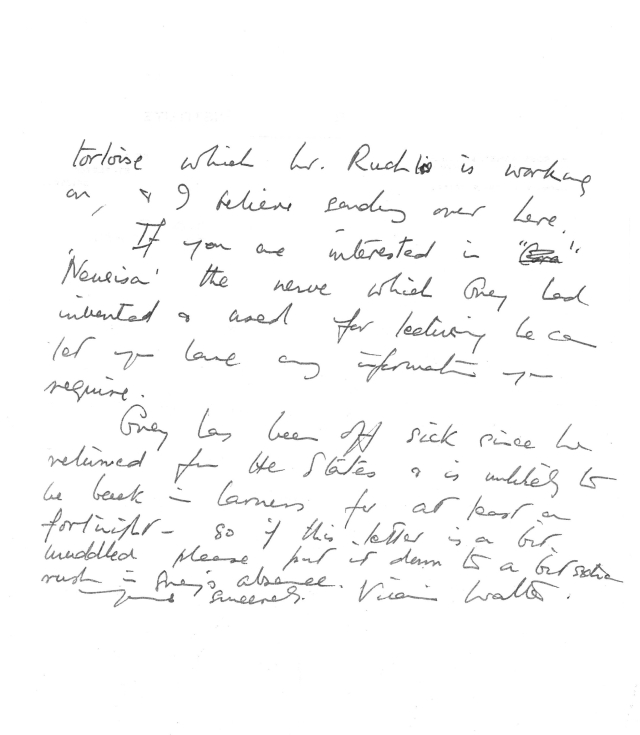 tortoise which Mr. Ruchlis is working
on, & I believe sending over here.
If you are interested in
'Neurisa' the nerve which Grey had
invented & used for lecturing he can
let you have any information you
require.
Grey has been off sick since he
returned from the States & is unlikely to
be back in harness for at least a
fortnight – so if this letter is a bit
muddled please put it down to a bit
rush in Grey's absence.
Yours sincerely. Vivian Walter.